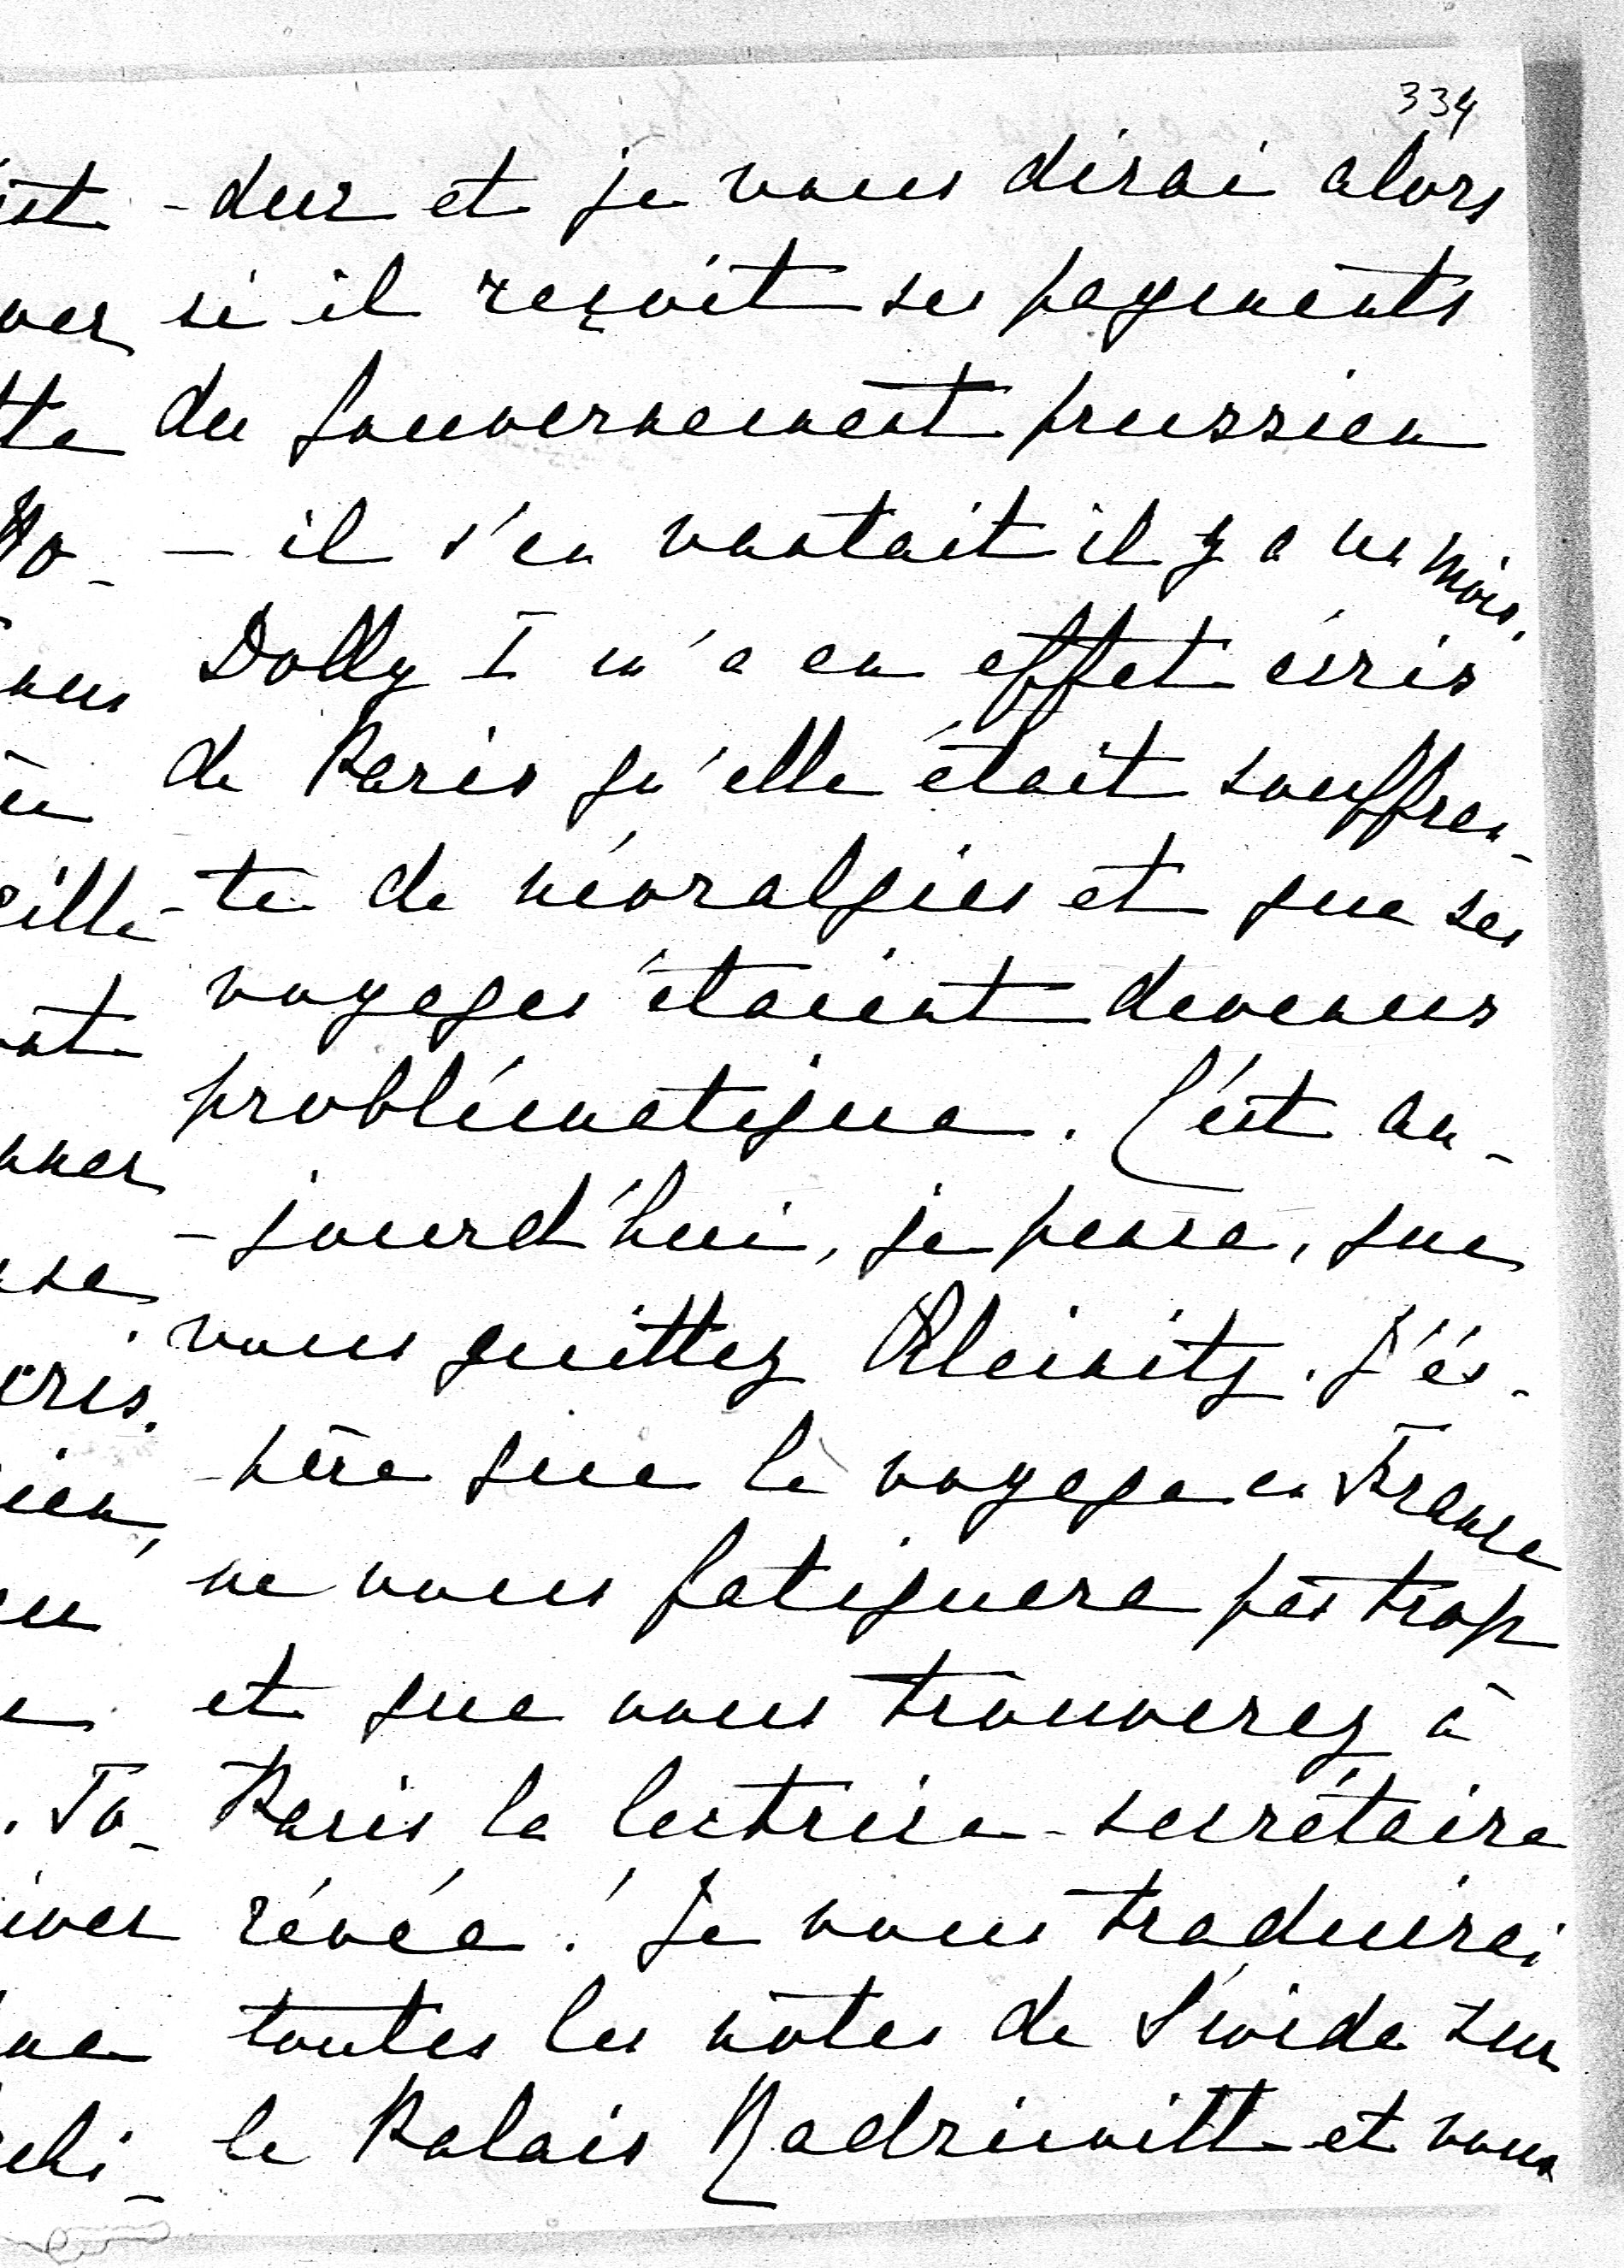 334
-dur et je vous dirai alors
si il reçoit ses payements
du Gouvernement prussien
– il s'en vantait il y a un mois.
Dolly T m'a en effet écris
de Paris qu'elle était souffran-
-te de névralgies et que ses
voyages étaient devenus
problématique. C'est au-
-jourd'hui, je pense, que
vous quittez Kleinitz. J'és-
-père que le voyage en France
ne vous fatiguera pas trop
et que vous trouverez à
Paris la lectrice-secrétaire
révée! Je vous traduirai
toutes les notes de Suida sur
le Palais et vous